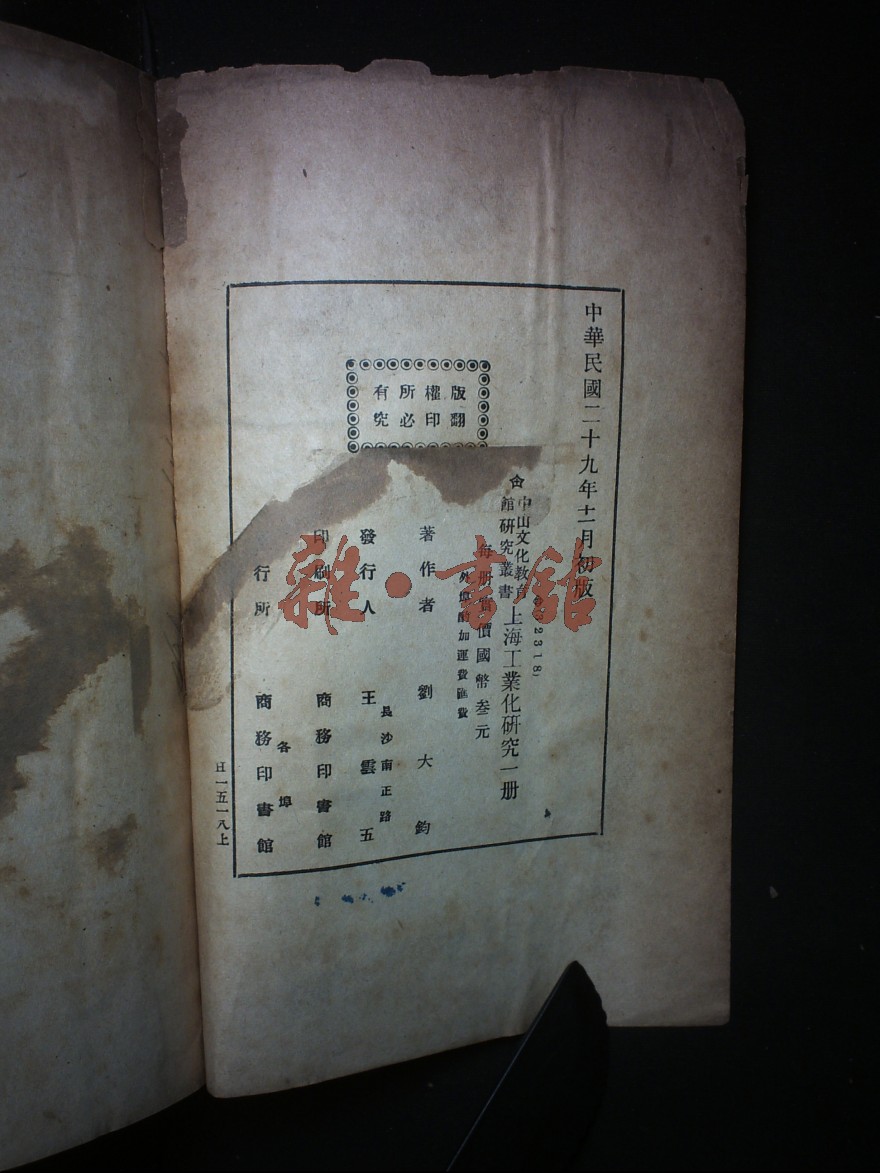 中華民國二十九年十一月初版
中山文化教育
館研究叢書
上海工業化研究一册
2318)
每册實價國幣叁元
外埠酌加運費匯費
版權所有
翻印必究
著作者 劉大鈞
發行人 王雲五
長沙南正路
印刷所 商務印書館
行所 商務印書館
各埠
H一五一八上
雜·書館